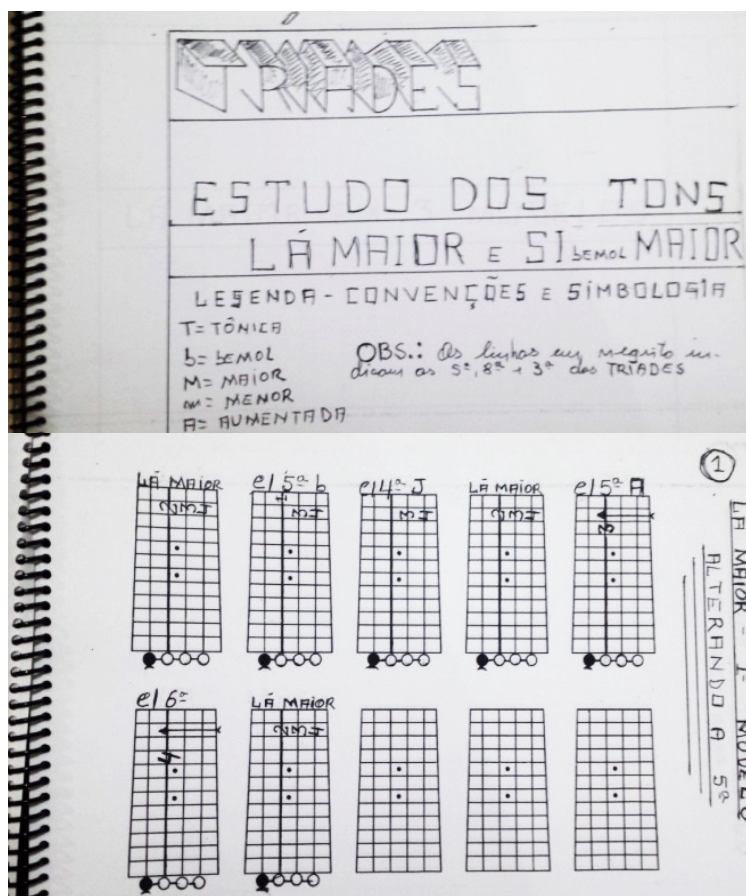 TRÍADES
ESTUDO DOS TONS
LÁ MAIOR E SI bEMOL MAIOR
LEGENDA - CONVENÇÕES E SIMBOLOGIA
T= TÔNICA
b= bEMOL
M= MAIOR
m= MENOR
A= AUMENTADA
OBS.: As linhas em negrito in-
dicam as 5ª, 8ª e 3ª das TRÍADES
1
LÁ MAIOR - 1º MODELO
ALTERANDO A 5ª
LÁ MAIOR
2 3 4
c/ 5ª b
1 3 4
c/ 4ª J
3 4
LÁ MAIOR
2 3 4
c/ 5ª A
3
c/ 6ª
4
LÁ MAIOR
2 3 4